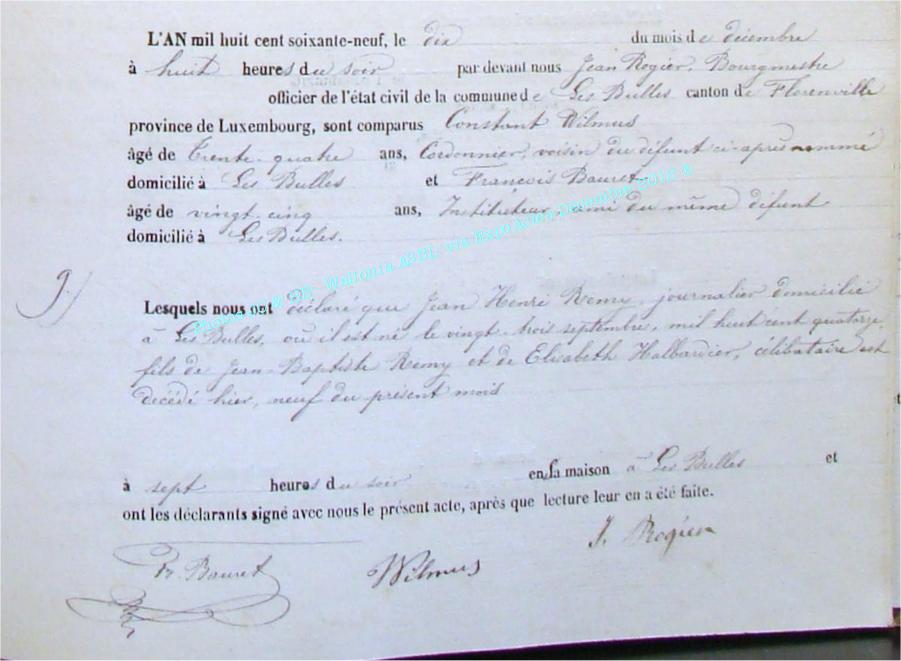 L'AN mil huit cent soixante-neuf, le dix du mois de décembre
à huit heures du soir par devant nous Jean Rogier, Bourgmestre
officier de l'état civil de la commune de Les Bulles canton de Florenville
province de Luxembourg, sont comparus Constant Wilmus
âgé de trente-quatre ans, Cordonnier, voisin du défunt ci-après nommé
domicilié à Les Bulles et François Bauret
âgé de vingt-cinq ans, Instituteur, ami du même défunt
domicilié à Les Bulles.
Lesquels nous ont déclaré que Jean Henri Remy, journalier domicilié
à Les Bulles, où il est né le vingt-trois septembre, mil huit cent quatorze,
fils de Jean-Baptiste Remy et de Elisabeth Halbardier, célibataire est
décédé hier, neuf du présent mois
à sept heures du soir en sa maison à Les Bulles et
ont les déclarants signé avec nous le présent acte, après que lecture leur en a été faite.
J. Rogier
Fr. Bauret Wilmus